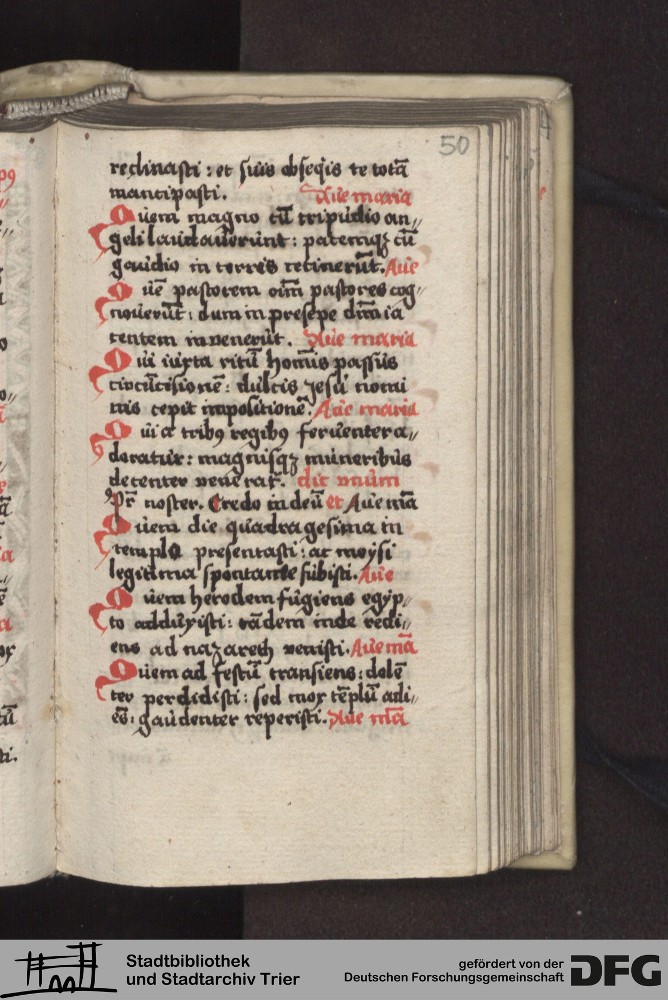 50
reclinasti : et suis obseqijs te totā
mancipasti. Aue maria
Quem magno cū tripudio an„
geli laudauerunt : patremqꝫ cū
gaudio in terris recinerūt. Aue
Quē pastorem oīm pastores cog„
nouerūt : dum in presepe dīm ia
centem inuenerūt. Aue maria
Qui iuxta ritū hominis passus
circūcisionē : dulcis Jesu nomi
nis cepit impositionē. Aue maria
Qui a tribꝰ regibꝰ feruenter a„
doratur : magnisqꝫ muneribus
decenter venerat᷑. dic vnum
Pr̄ noster. Credo in deū et Aue mā
Quem die quadragesima in
templo presentasti : ac moysi
legitima spontanee subisti. Aue
Quem herodem fugiens egyp„
to adduxisti : eādem inde redi„
ens ad nazareth venisti. Aue mā
Quem ad festū transiens : dolē
ter perdidisti : sed mox tēplū adi„
ēs : gaudenter reperisti. Aue mā
Stadtbibliothek
und Stadtarchiv Trier
gefördert von der
Deutschen Forschungsgemeinschaft
DFG